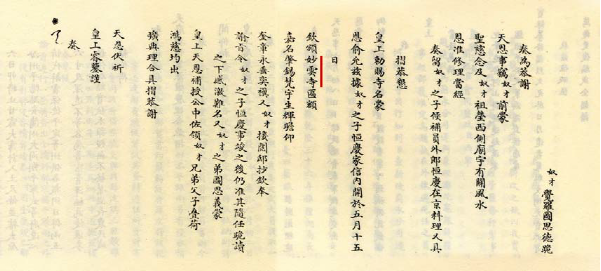 奴才覺羅國恩德跪
奏為恭謝
天恩事竊奴才前蒙
聖慈念及奴才祖塋西側廟宇有關風水
恩准修理當經
奏留奴才之子候補員外郎恒慶在京料理又具
摺恭懇
皇上勅賜寺名蒙
恩俞允茲據奴才之子恒慶家信內開於五月十五
日
欽頒妙雲寺匾額
嘉名肇錫梵宇生輝瞻仰
奎章永垂奕禩又奴才接閱邸抄欽奉
諭旨令奴才之子恒慶事竣之後仍准其隨任跪讀
之下感激難名又奴才之弟國恩義蒙
皇上天恩補授公中佐領奴才兄弟父子疊荷
鴻慈均出
曠典理合具摺恭謝
天恩伏祈
皇上睿鑒謹
奏